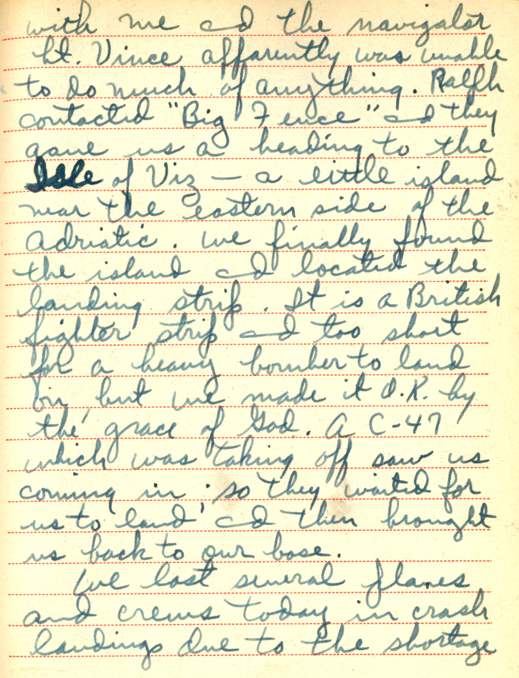 with me and the navigator
Lt. Vince apparently was unable
to do much of anything. Ralph
contacted "Big Fence" and they
gave us a heading to the
Isle of Viz — a little island
near the eastern side of the
Adriatic. We finally found
the island and located the
landing strip. It is a British
fighter strip and too short
for a heavy bomber to land
on, but we made it O.K. by
the grace of God. A C-47
which was taking off saw us
coming in so they waited for
us to land, and then brought
us back to our base.
We lost several planes
and crews today in crash
landings due to the shortage